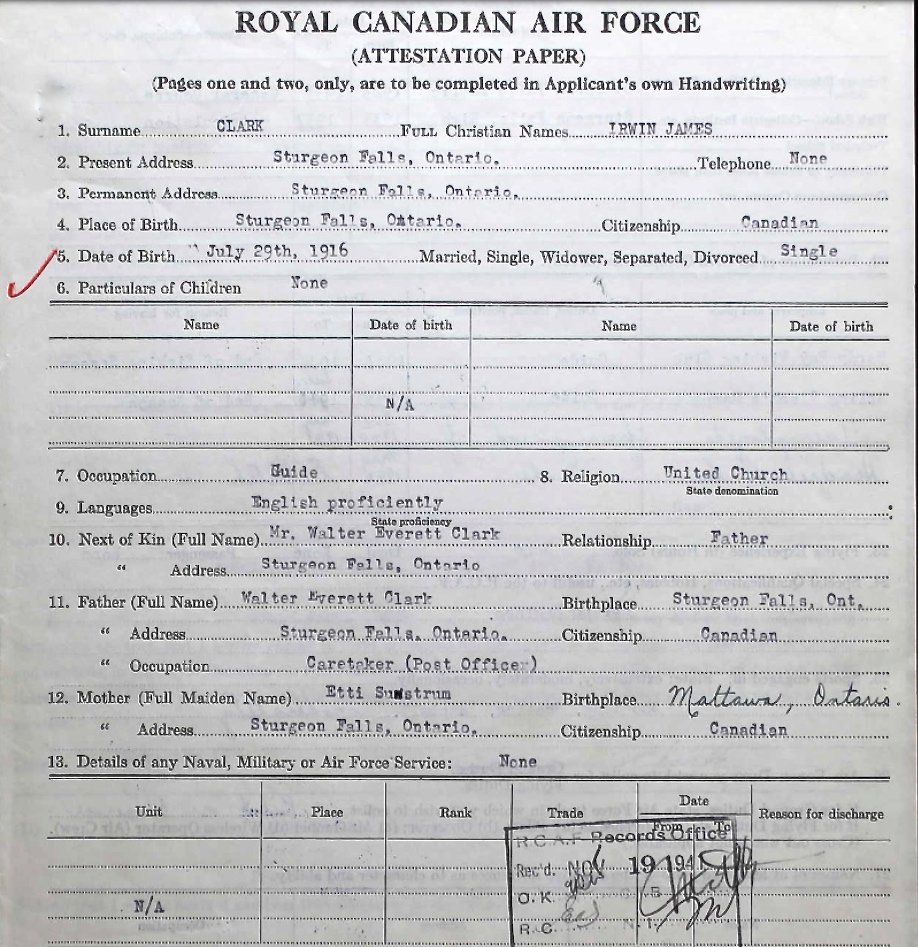 ROYAL CANADIAN AIR FORCE
(ATTESTATION PAPER)
(Pages one and two, only, are to be completed in Applicant's own Handwriting)
1. Surname CLARK FULL Christian Names IRWIN JAMES
2. Present Address Sturgeon Falls, Ontario. Telephone None
3. Permanent Address Sturgeon Falls, Ontario.
4. Place of Birth Sturgeon Falls, Ontario. Citizenship Canadian
5. Date of Birth July 29th, 1916 Married, Single, Widower, Separated, Divorced Single
6. Particulars of Children None
Name Date of birth Name Date of birth
N/A
7. Occupation Guide 8. Religion United Church
State denomination
9. Languages English proficiently
State proficiency
10. Next of Kin (Full Name) Mr. Walter Everett Clark Relationship Father
" Address Sturgeon Falls, Ontario
11. Father (Full Name) Walter Everett Clark Birthplace Sturgeon Falls, Ont.
" Address Sturgeon Falls, Ontario. Citizenship Canadian
" Occupation Caretaker (Post Office)
12. Mother (Full Maiden Name) Etti Sunstrum Birthplace Mattawa, Ontario.
" Address Sturgeon Falls, Ontario. Citizenship Canadian
13. Details of any Naval, Military or Air Force Service: None
Unit Place Rank Trade Date Reason for discharge
From To
R.C.A.F. Records Office
Rec'd. NOV 19 194
O.K.
N/A
R.C.